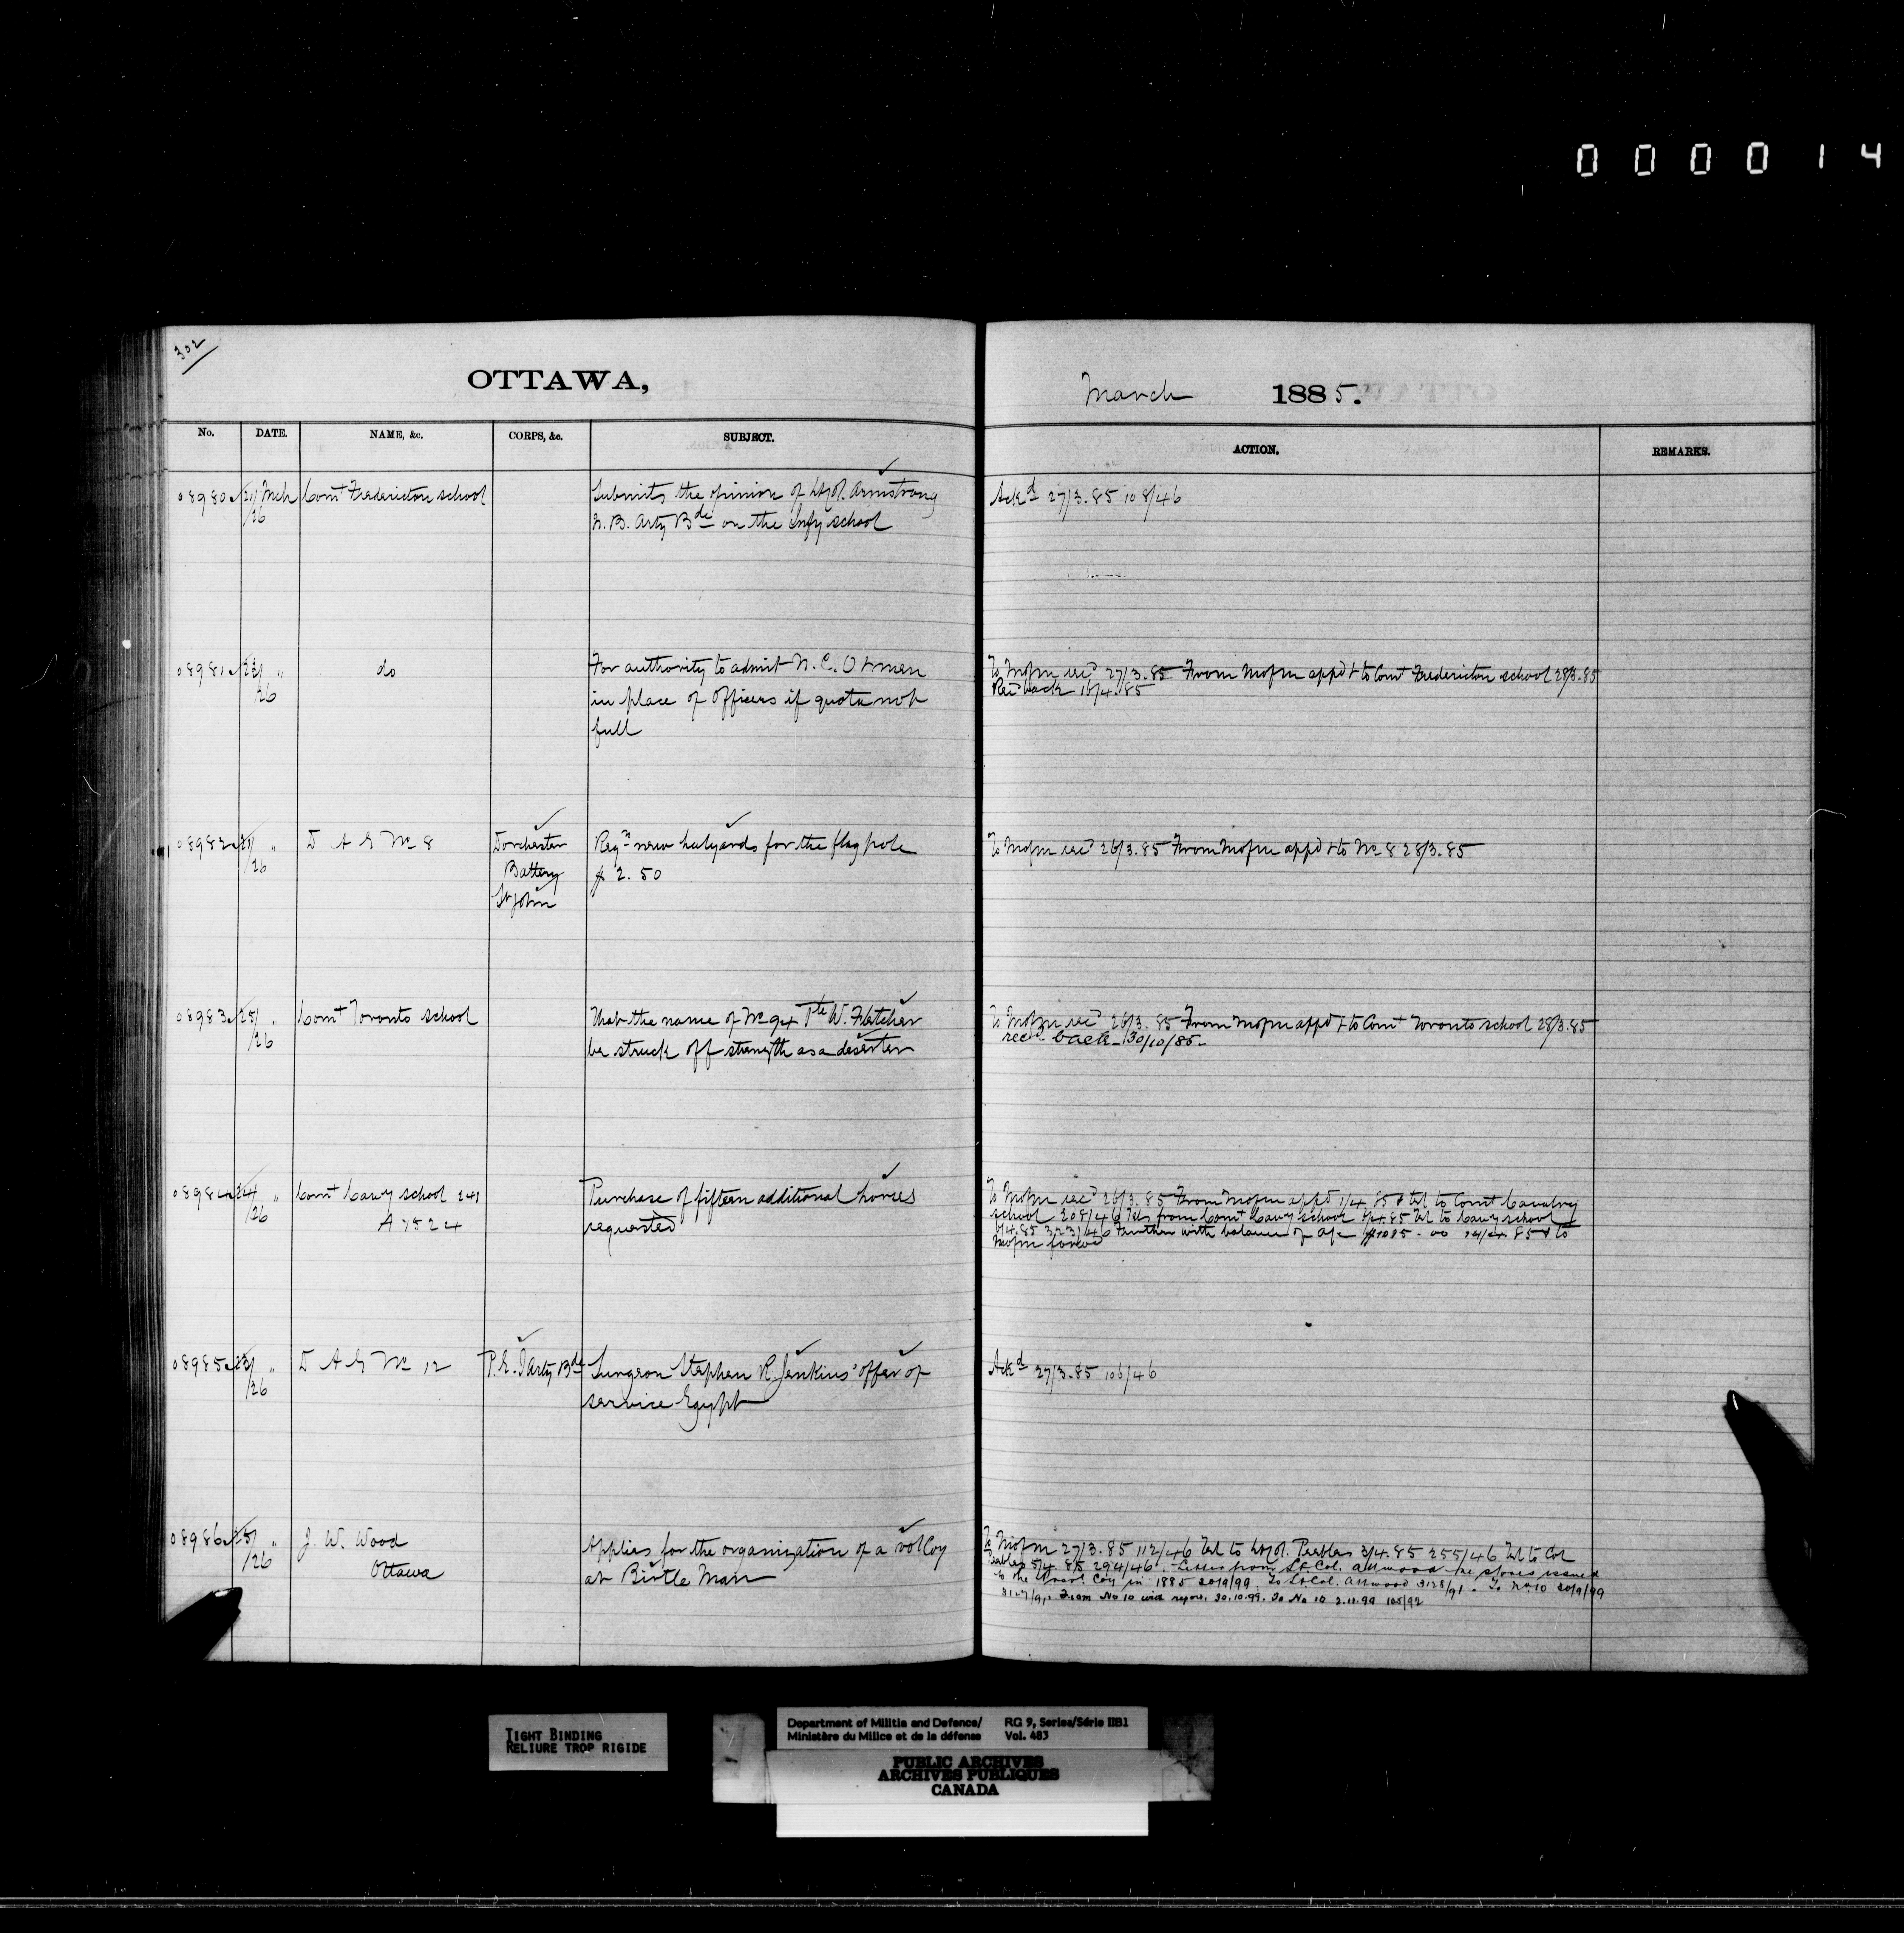 000014
302
OTTAWA,
March 1885.
No. DATE. NAME, &c. CORPS, &c. SUBJECT. ACTION. REMARKS.
08980 21/26 Mch Comt Fredericton school Submits the opinion of Lt Col. Armstrong Ackd 27/3.85 108/46
N. B. Arty Bde on the Infy school
08981 23/26 " do For authority to admit N. C. O & men To Mofm recd 27/3.85 From Mofm appd & to Comt Fredericton school 28/3.85
in place of Officers if quota not Recd back 16/4.85
full
08982 21/26 " D A G No 8 Dorchester Reqn new halyards for the flag pole To Mofm recd 26/3.85 From Mofm appd & to No 8 28/3.85
Battery $ 2.50
St John
08983 25/26 " Comt Toronto school That the name of No 94 Pte W. Fletcher To Mofm recd 26/3.85 From Mofm appd & to Comt Toronto school 28/3.85
be struck off strength as a deserter recd back 30/10/85
08984 24/26 " Comt Cavy school 241 Purchase of fifteen additional horses To Mofm recd 26/3.85 From Mofm appd 1/4.85 & tel to Comt Cavalry
A 7524 requested school 208/46 Tels from Comt Cavy school 4.85 Tel to Cavy school
6/4.85 323/46 Further with balance of a/c $1085.00 14/4.85 & to
Mofm
08985 23/26 " D A G No 12 P.E.I Arty Bde Surgeon Stephen R. Jenkins' offer of Ackd 27/3.85 106/46
service Egypt
08986 25/26 " J. W. Wood Applies for the organization of a vol Coy To Mofm 27/3.85 112/46 Tel to Lt Col. Peebles 3/4.85 255/46 Tel to Col
Ottawa at Birtle Man Peebles 5/4.85 294/46. Letter from Lt. Col. Attwood re stores issued
to the Coy in 1885 20/9/99. To Lt Col. Attwood 3128/91. To No. 10 20/9/99
3127/91. From No 10 with report 30.10.99. To No 10 2.11.99 105/92
TIGHT BINDING
RELIURE TROP RIGIDE
Department of Militia and Defence/ RG 9, Series/Série IIB1
Ministère du Milice et de la défense Vol. 483
PUBLIC ARCHIVES
ARCHIVES PUBLIQUES
CANADA